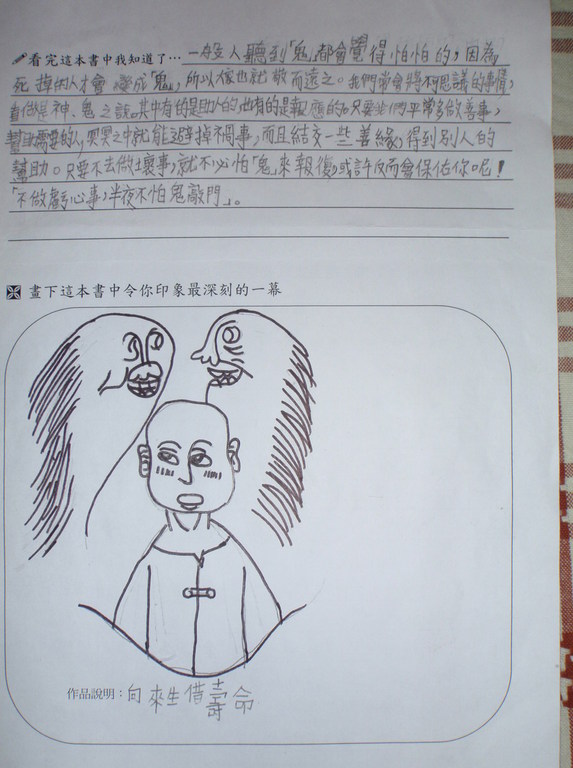 看完這本書中我知道了… 一般人聽到「鬼」都會覺得怕怕的，因為
死掉的人才會變成「鬼」，所以大家也就敬而遠之。我們常會將不可思議的事情，
當做是神、鬼之說。其中有的是助人的，也有的是報應的。只要我們平常多做善事，
幫助需要的人，冥冥之中就能避掉不同事，而且結交一些善緣，得到別人的
幫助。只要不去做壞事，就不必怕「鬼」來報復，或許反而會保佑你呢！
「不做虧心事，半夜不怕鬼敲門」。
畫下這本書中令你印象最深刻的一幕
作品說明：向來生借壽命